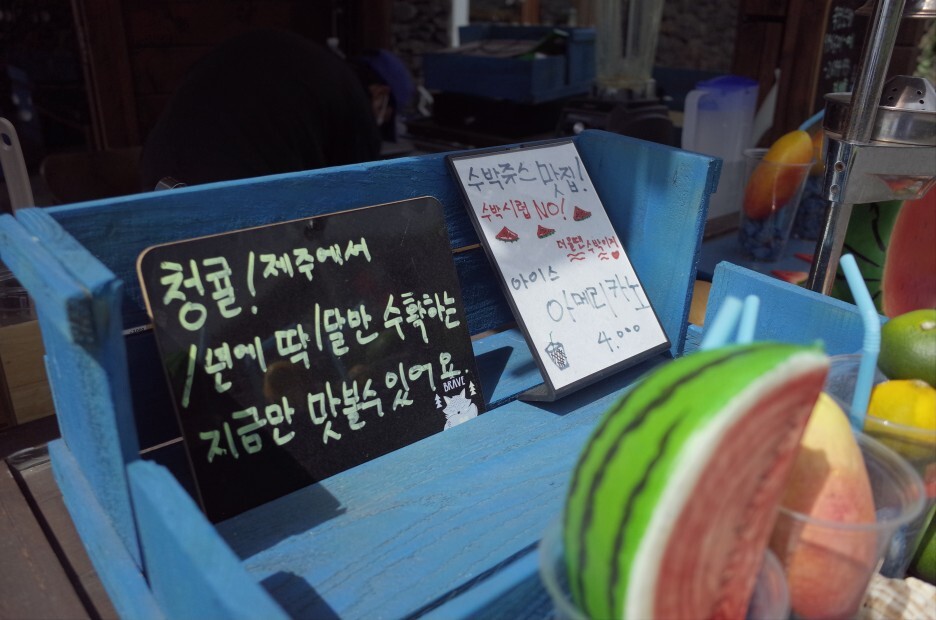 청귤! 제주에서
1년에 딱 1달반 수확하는
지금만 맛볼수 있어요.
BRAVE
수박쥬스 맛집!
수박시럽 NO!
수박이죠
아이스
아메리카노
4.000